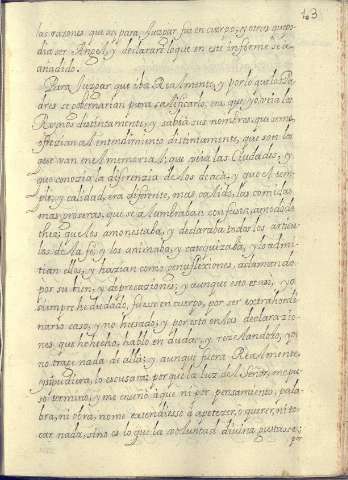 163
las razones que ay para Juzgar fue en cuerpo, y otras que po
dia ser Angel, y declarare lo que en este informe se a
añadido.
Para Juzgar que iba Realmente, y por lo que los Pa
dres se gobernarian para calificarlo; era, que yo via los
Reynos distintamente, y sabia sus nombres, que seme
ofrezian al entendimiento distintamente, que son los
que van en el memorial; que veia las Ciudades, y
que conozia la diferenzia de los de acà, y que el tem
ple, y calidad, era diferente, mas calido, las comidas
mas groseras, que se alumbraban con luzes, a modo de
theas, que les amonestaba, y declaraba todos los articu
los de la fe, y los animaba, y catequizaba, y lo admi
tian ellos, y hazian como genuflexiones, aclamando
por su bien, y deprecaciones; y aunque esto es asi, yo
siempre he dudado, fuese en cuerpo, por ser extrahordi
nario caso, y no husado, y por esto en las declarazio
nes que he hecho, hablo en duda; y rezelandolo, yo
no trage nada de alla; y aunque fuera Realmente,
y pudiera, lo escusara; porque la luz de el Señor, me pu
so termino, y me enseño a que ni por pensamiento, pala
bra, ni obra, no me extendiesse a apetezer, o querer, ni to
car nada, sino es lo que la voluntad divina gustase;